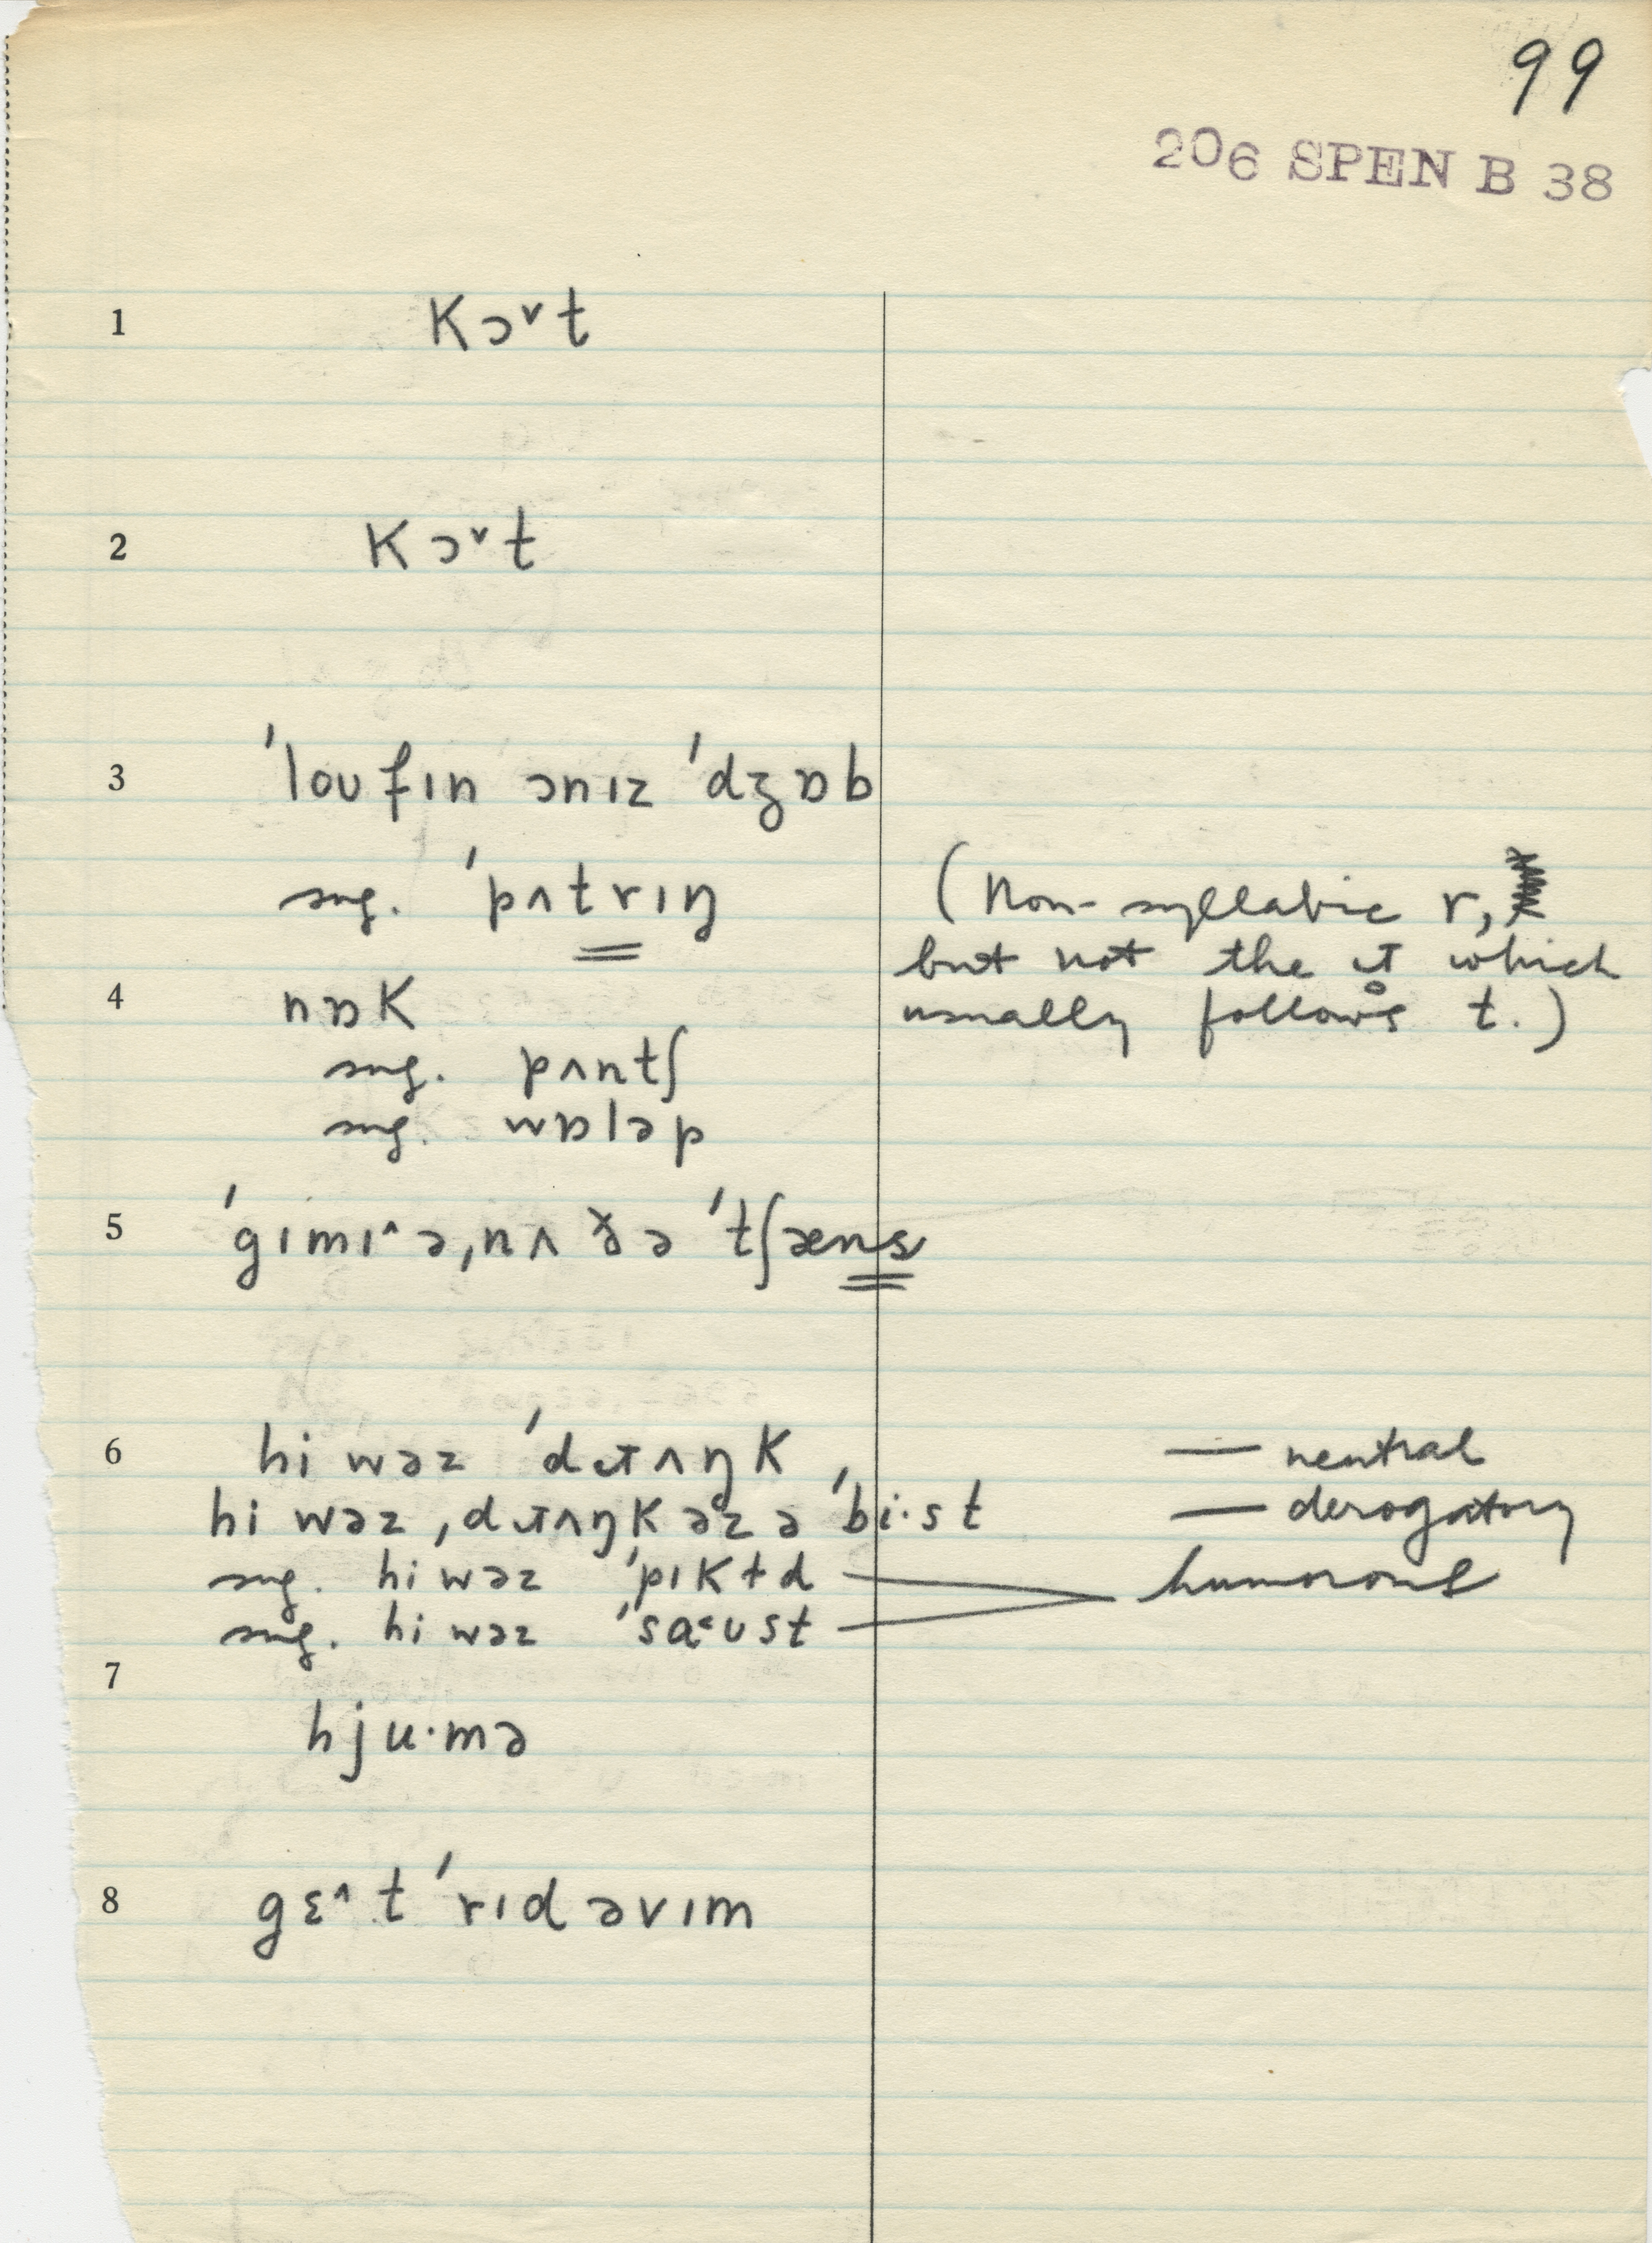 99
206 SPEN B 38
1 kɔ˅t
2 kɔ˅t
3 ˈloʊfɪn ɔnɪz ˈdʒɒb
sug. ˈpʌtrɪŋ (Non-syllabic r,
but not the ɹ̥ which
4 nɒk usually follows t.)
sug. pʌntʃ
sug. wɒləp
5 ˈgɪmɪ˄ə,nʌðə ˈtʃæns
6 hi wəz ˈdɹʌŋk — neutral
hi wəz ˌdɹʌŋkəzə ˈbi·st — derogatory
sug. hi wəz ˈpɪkɫd humorous
sug. hi wəz ˈsɑ˂ʊst
7 hju·mə
8 gɛ˄t ˈrɪdəvɪm